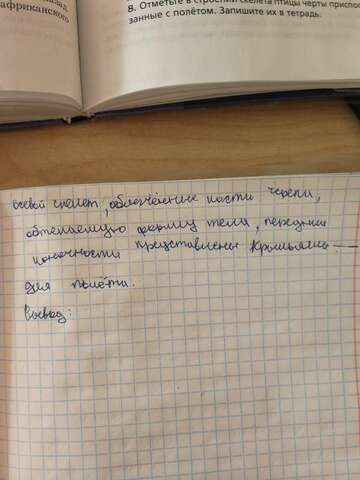 африканского
8. Отметьте в строении скелета птицы черты приспосо
занные с полётом. Запишите их в тетрадь.
осевой скелет, облегчённые кости черепа,
обтекаемую форму тела, передние
конечности представлены крыльями —
для полёта.
Вывод: